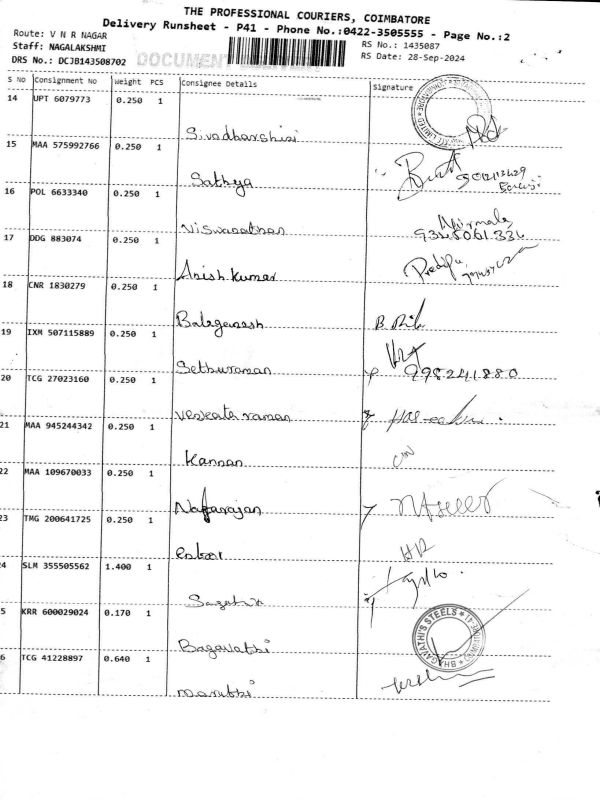 THE PROFESSIONAL COURIERS, COIMBATORE
Delivery Runsheet - P41 - Phone No.:0422-3505555 - Page No.:2
Route: V N R NAGAR
Staff: NAGALAKSHMI
RS No.: 1435087
DRS No.: DCJB143508702 DOCUMENT
RS Date: 28-Sep-2024
S No Consignment No Weight PCS Consignee Details Signature
14 UPT 6079773 0.250 1
Sivadharshini
15 MAA 575992766 0.250 1
Sathya
16 POL 6633340 0.250 1
Nirmala
Viswanathan 9345061334
17 DDG 883074 0.250 1
Anish kumar
18 CNR 1830279 0.250 1
Balaganesh
19 IXM 507115889 0.250 1
Sethuraman 998241880
20 TCG 27023160 0.250 1
Venkata raman
21 MAA 945244342 0.250 1
Kannan
22 MAA 109670033 0.250 1
Natarajan
23 TMG 200641725 0.250 1
4 SLM 355505562 1.400 1
5 KRR 600029024 0.170 1
BHAGAVATHI'S STEELS
Bagavathi
6 TCG 41228897 0.640 1